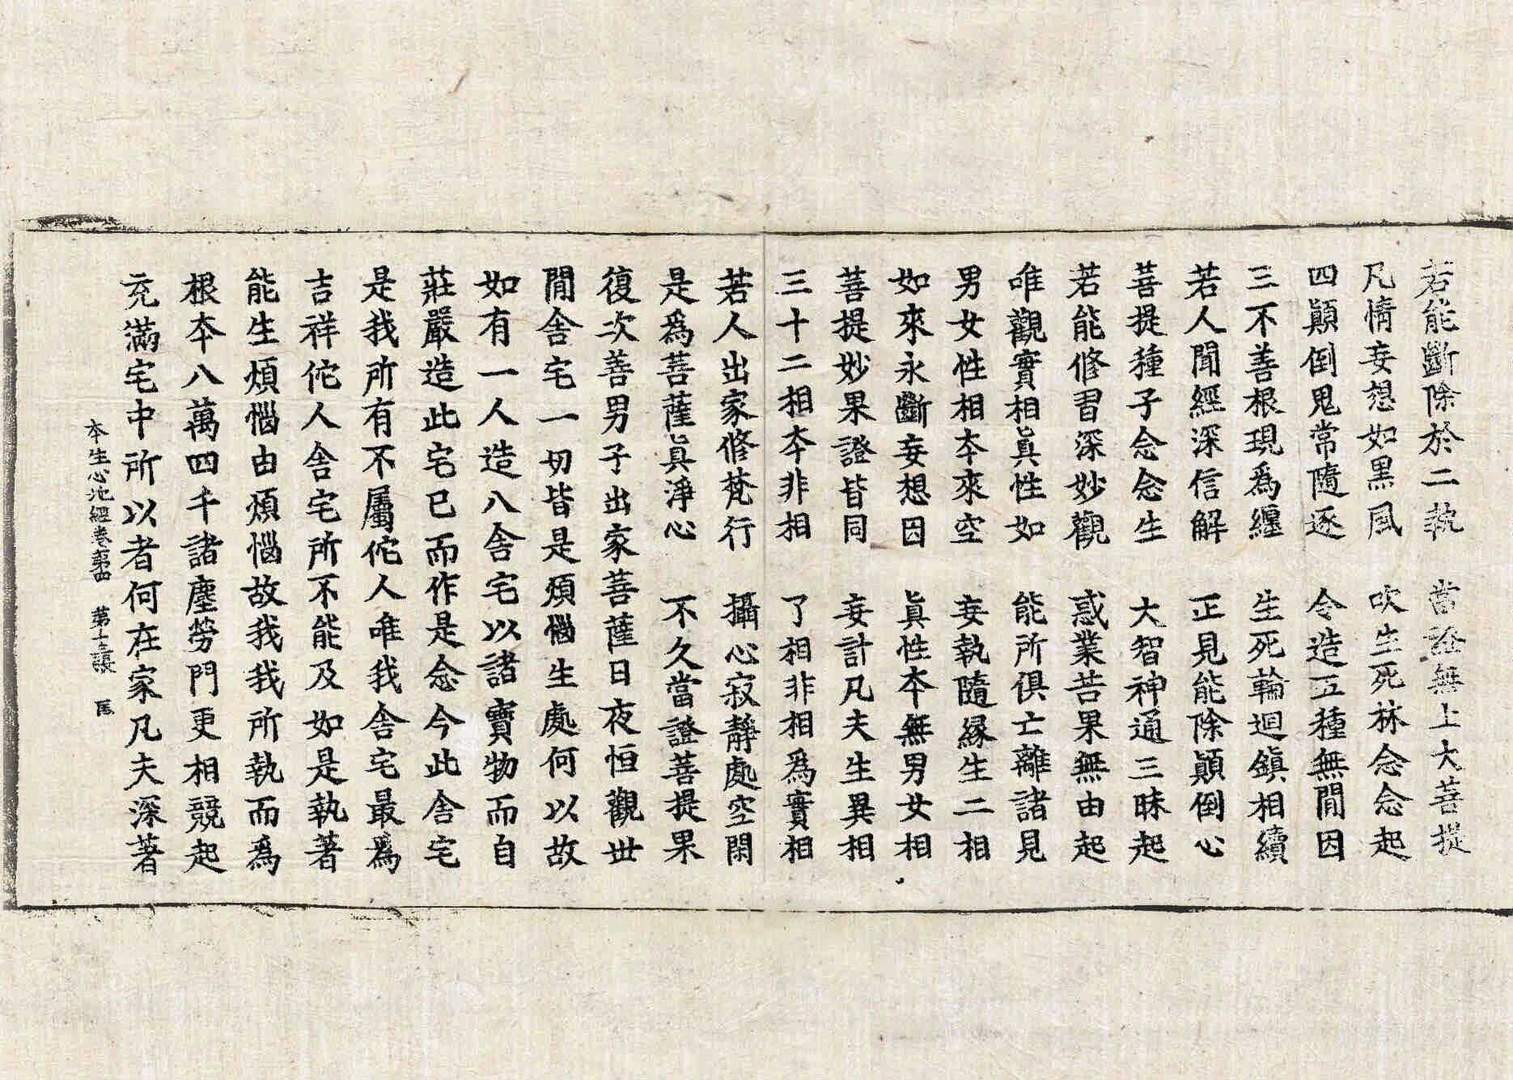 若能斷除於二執　當證無上大菩提
凡情妄想如黑風　吹生死林念念起
四顛倒鬼常隨逐　令造五種無間因
三不善根現爲纏　生死輪迴鎮相續
若人聞經深信解　正見能除顛倒心
菩提種子念念生　大智神通三昧起
若能修習深妙觀　惑業苦果無由起
唯觀實相眞性如　能所俱亡離諸見
男女性相本來空　妄執隨縁生二相
如來永斷妄想因　眞性本無男女相
菩提妙果證皆同　妄計凡夫生異相
三十二相本非相　了相非相爲實相
若人出家修梵行　攝心寂靜處空閑
是爲菩薩眞淨心　不久當證菩提果
復次善男子出家菩薩日夜恒觀世
間舍宅一切皆是煩惱生處何以故
如有一人造八舍宅以諸寶物而自
莊嚴造此宅已而作是念今此舍宅
是我所有不屬佗人唯我舍宅最爲
吉祥佗人舍宅所不能及如是執著
能生煩惱由煩惱故我我所執而爲
根本八萬四千諸塵勞門更相競起
充滿宅中所以者何在家凡夫深著
本生心地經卷第四　第十張